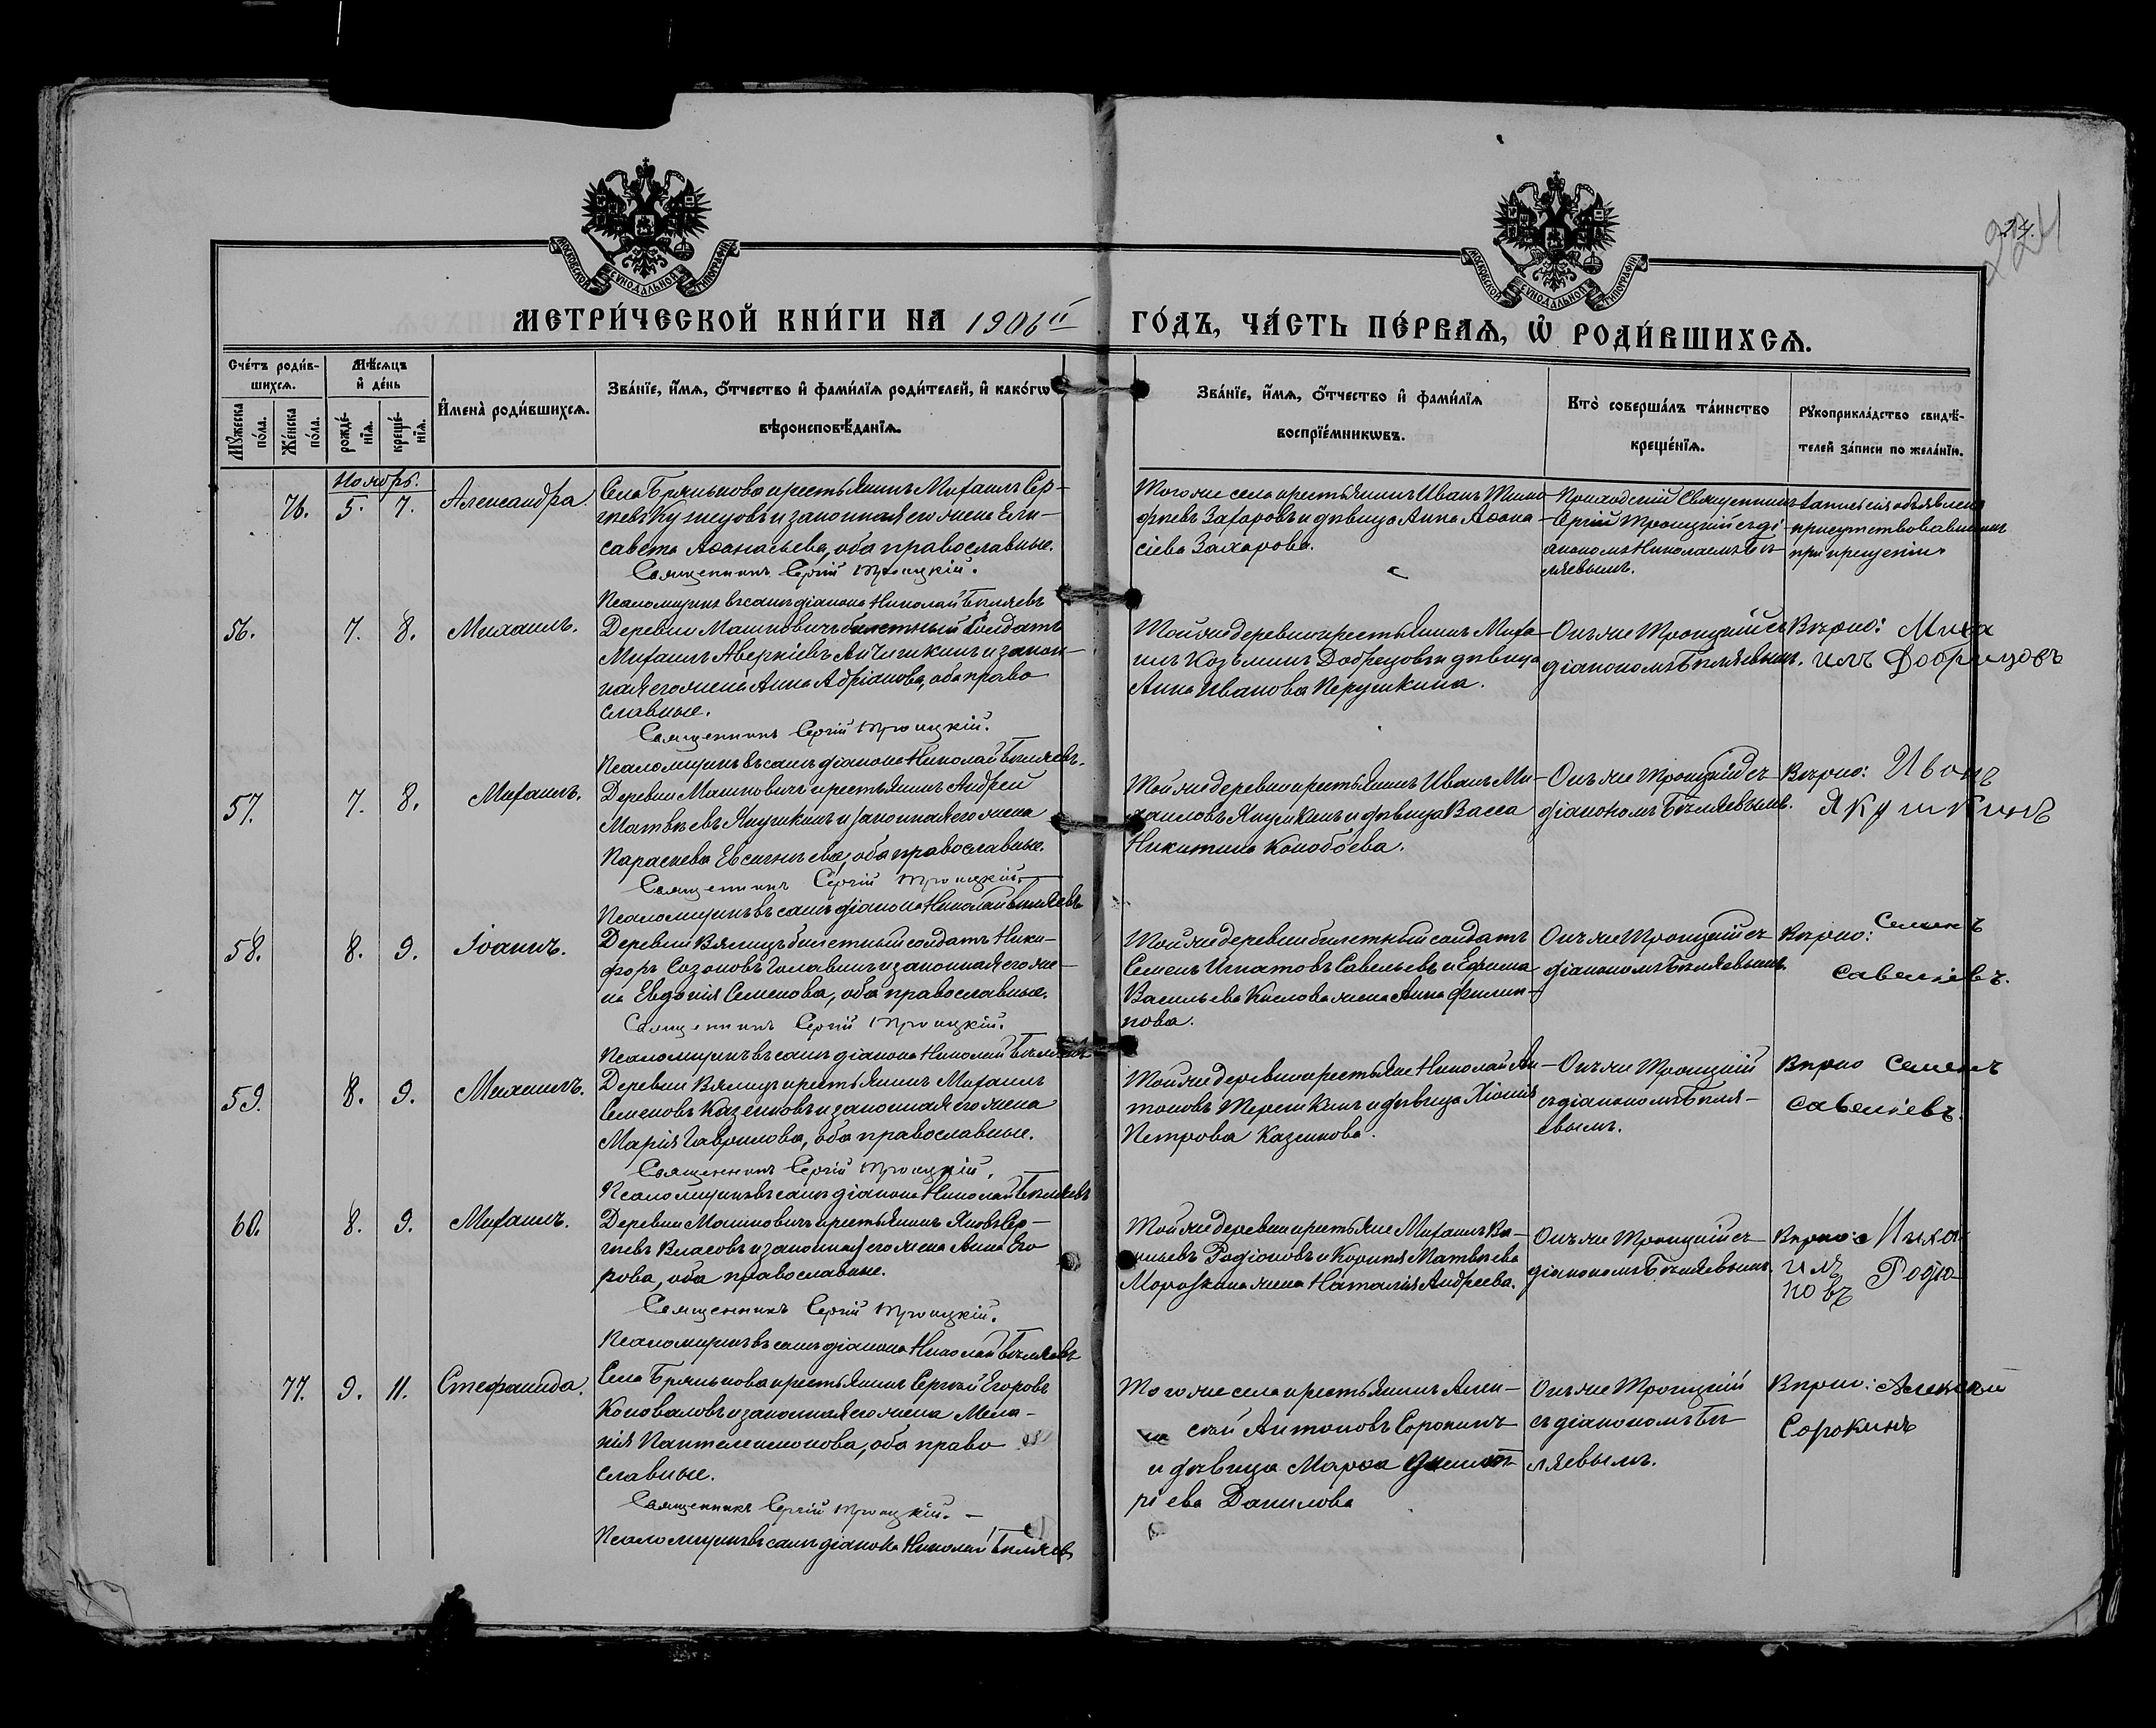 224
24.
МОСКОВСКОЙ СѴНОДАЛЬНОЙ ТИПОГРАФІИ
МОСКОВСКОЙ СѴНОДАЛЬНОЙ ТИПОГРАФІИ
МЕТРИ́ЧЕСКОЙ КНИ́ГИ НА 1906й ГО́ДЪ, ЧА́СТЬ ПЕ́РВАѦ, Ѽ РОДИ́ВШИХСѦ.
Сче́тъ роди́в-
шихсѧ.
Мꙋ́жеска по́ла.
Же́нска по́ла.
Мѣ́сѧцъ и҆ де́нь
рожде́-
нїѧ.
креще́-
нїѧ.
И҆мена̀ роди́вшихсѧ.
Зва́нїе, и҆́мѧ, ѻ҆́тчество и҆ фами́лїѧ роди́телей, и҆ како́гѡ
вѣроисповѣ́данїѧ.
Зва́нїе, и҆́мѧ, ѻ҆́тчество и҆ фами́лїѧ
воспрїе́мникѡвъ.
Кто̀ соверша́лъ та́инство
креще́нїѧ.
Рꙋкоприкла́дство свидѣ́-
телей за́писи по жела́нїю.
Ноябрь.
76. 5. 7. Александра.
Села Брянькова крестьянинъ Михаилъ Сер-
гѣевъ Кузнецовъ и законная его жена Ели-
савета Аѳанасьева, оба православные.
Священникъ Сергій Троицкій.
Псаломщикъ въ санѣ діакона Николай Бѣляевъ
Того же села крестьянинъ Иванъ Тимо-
фѣевъ Захаровъ и дѣвица Анна Аѳана-
сіева Захарова.
Приходскій Священникъ
Сергій Троицкій съ ді-
акономъ Николаемъ Бѣ-
ляевымъ.
Запись сія объявлена
присутствовавшимъ
при крещеніи
56. 7. 8. Михаилъ.
Деревни Машковичъ билетный солдатъ
Михаилъ Аверкіевъ Анчишкинъ и закон-
ная его жена Анна Адріанова, оба право
славные.
Священникъ Сергій Троицкій.
Псаломщикъ въ санѣ діакона Николай Бѣляевъ.
Той же деревни крестьянинъ Миха-
илъ Козьминъ Добрецовъ и дѣвица
Анна Иванова Перушкина.
Онъ же Троицкій съ
діакономъ Бѣляевымъ.
Вѣрно: Миха
илъ Добрецовъ
57. 7. 8. Михаилъ.
Деревни Машковичъ крестьянинъ Андрей
Матвѣевъ Якушкинъ и законная его жена
Параскева Евсигнѣева, оба православные.
Священникъ Сергій Троицкій.
Псаломщикъ въ санѣ діакона Николай Бѣляевъ
Той же деревни крестьянинъ Иванъ Ми-
хаиловъ Якушкинъ и дѣвица Васса
Никитина Конобоева.
Онъ же Троицкій съ
діакономъ Бѣляевымъ.
Вѣрно: Иванъ
Якушкинъ
58. 8. 9. Іоаннъ.
Деревни Вялицъ билетный солдатъ Ники-
форъ Созоновъ Голавинъ и законная его же-
на Евдокія Семенова, оба православные.
Священникъ Сергій Троицкій.
Псаломщикъ въ санѣ діакона Николай Бѣляевъ
Той же деревни билетный солдатъ
Семенъ Игнатовъ Савельевъ и Ефима
Васильева Кислова жена Анна Филип-
пова.
Онъ же Троицкій съ
діакономъ Бѣляевымъ.
Вѣрно: Семенъ
Савелıевъ.
59. 8. 9. Михаилъ.
Деревни Вялицъ крестьянинъ Михаилъ
Семеновъ Казенновъ и законная его жена
Марія Гаврилова, оба православные.
Священникъ Сергій Троицкій.
Псаломщикъ въ санѣ діакона Николай Бѣляевъ
Той же деревни крестьяне Николай Ан-
тоновъ Терешкинъ и дѣвица Хіонія
Петрова Казеннова.
Онъ же Троицкій
съ діакономъ Бѣля-
евымъ.
Вѣрно Семенъ
Савеліевъ.
60. 8. 9. Михаилъ.
Деревни Машковичъ крестьянинъ Яковъ Сер-
гѣевъ Власовъ и законная его жена Анна Его
рова, оба православные.
Священникъ Сергій Троицкій.
Псаломщикъ въ санѣ діакона Николай Бѣляевъ
Той же деревни крестьяне Михаилъ Ва-
Родіоновъ и Корнилія Матвѣева
Морозкина жена Наталія Андреева.
Онъ же Троицкій съ
діакономъ Бѣляевымъ.
Вѣрно: Миха
илъ Родіо
новъ
77. 9. 11. Стефанида.
Села Брянькова крестьянинъ Сергѣй Егоровъ
Коноваловъ и законная его жена Мела-
нія Пантелеимонова, оба право
славные.
Священникъ Сергій Троицкій.
Псаломщикъ въ санѣ діакона Николай Бѣляевъ
Того же села крестьянинъ Алек-
сѣй Антоновъ Сорокинъ
и дѣвица Марѳа Димит-
ріева Данилова
Онъ же Троицкій
съ діакономъ Бѣ
ляевымъ.
Вѣрно: Алексѣй
Сорокинъ